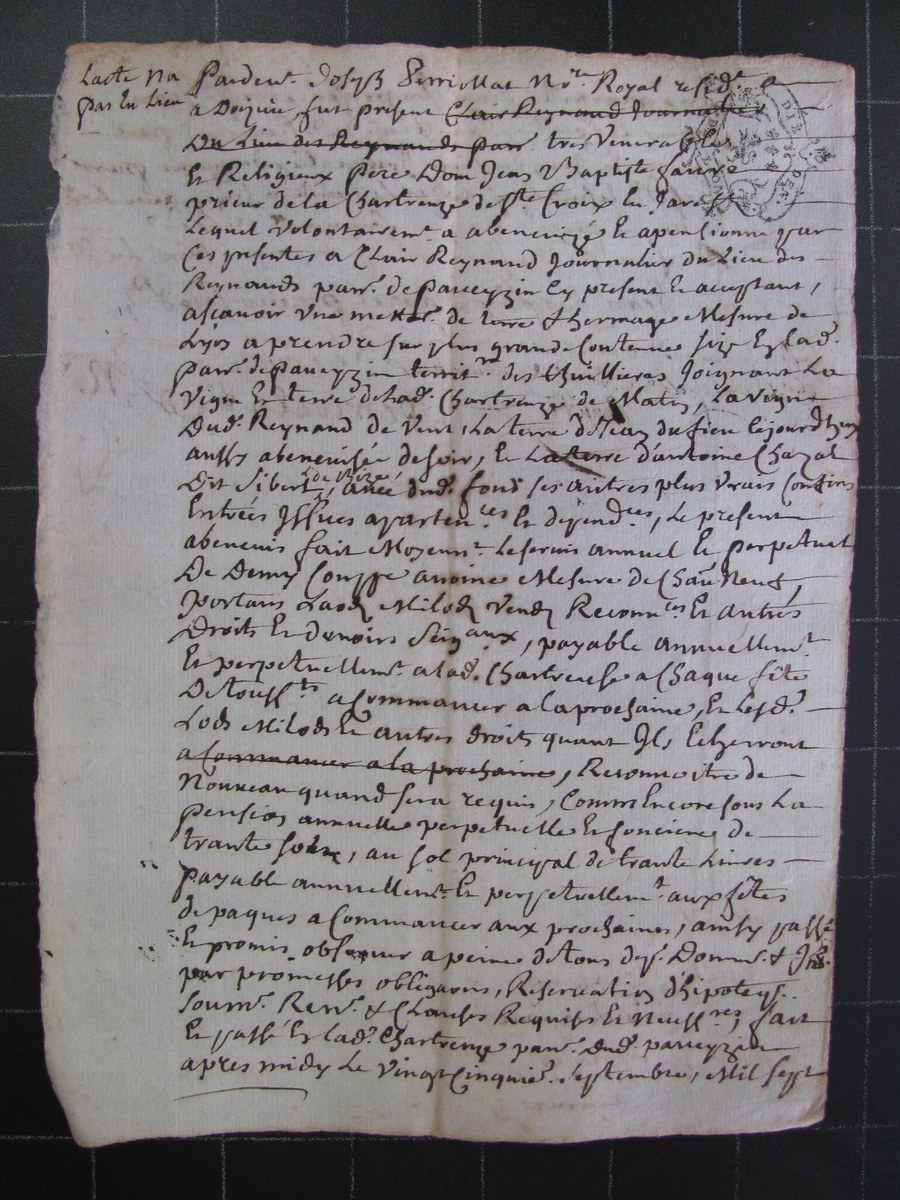 Lacte na
pas eu Lieu
Pardevt. Joseph Perriollat Nre. Royal residt. a
a Doizieu, fut present Clair Reynaud Journalier
Du Lieu des Reynauds parr tres Venerable
Et Religieux pere Dom Jean Baptiste faure
prieur de la Chartreuze de Ste. Croix En Jarest
Lequel Volontairemt. a abenevizé Et apensionné par
Ces presentes a Clair Reynaud Journalier du Lieu des
Reynauds parr. de paveyzin Cy present Et acceptant,
ascavoir Une mettr. de terre & hermage Mesure de
Lyon a prendre sur plus grande Contenue size En lad.
parr. de paveyzin territre. des thuillieres Joignant La
Vigne Et terre de Lad. Chartreuze de Matin, La Vigne
Dud. Reynaud de Vent, La terre de Jean dufieu Cejourdhuy
aussy abenevisée de soir, Et La terre d'antoine Chazal
Dit Sibert de bize, avec dud. fond ses autres plus vrais Confins
Entrées Issues apartences Et dependces, Le present
abenevis fait Moyennt. Le servis annuel Et perpetuel
De Demy Couppe avoine Mesure de Chau Neuf,
portant Laods Milods Vends Reconnces Et autres
Droits Et devoirs Seigaux, payable annuellemt.
Et perpetuellemt. a lad. Chartreuse a Chaque fête
De toussts a Commancer a la prochaine, Et Lesd.
Lods Milods Et autres droits quant Ils Echerront
a Commancer a la prochaine, Reconnoitre de
Nouveau quand sera requis, Comm Encore sous La
pension annuelle perpetuelle Et fonciere de
trante sols, au sol principal de trante Livres
payable annuellemt. Et perpetuellemt. aux fêtes
de paques a Commancer aux prochaines, ainsy passé
Et promis observer a peine de tous desp. Domm. & Jnts.
par promesses obligaons, Reservation d'hipoteqs.
soumn. Renn. & Clauses Requises Et Necessres, fait
Et passé En lad. Chartreuze parr. dud. paveyzin
apres midy Le vingt Cinquie. Septembre, Mil sept